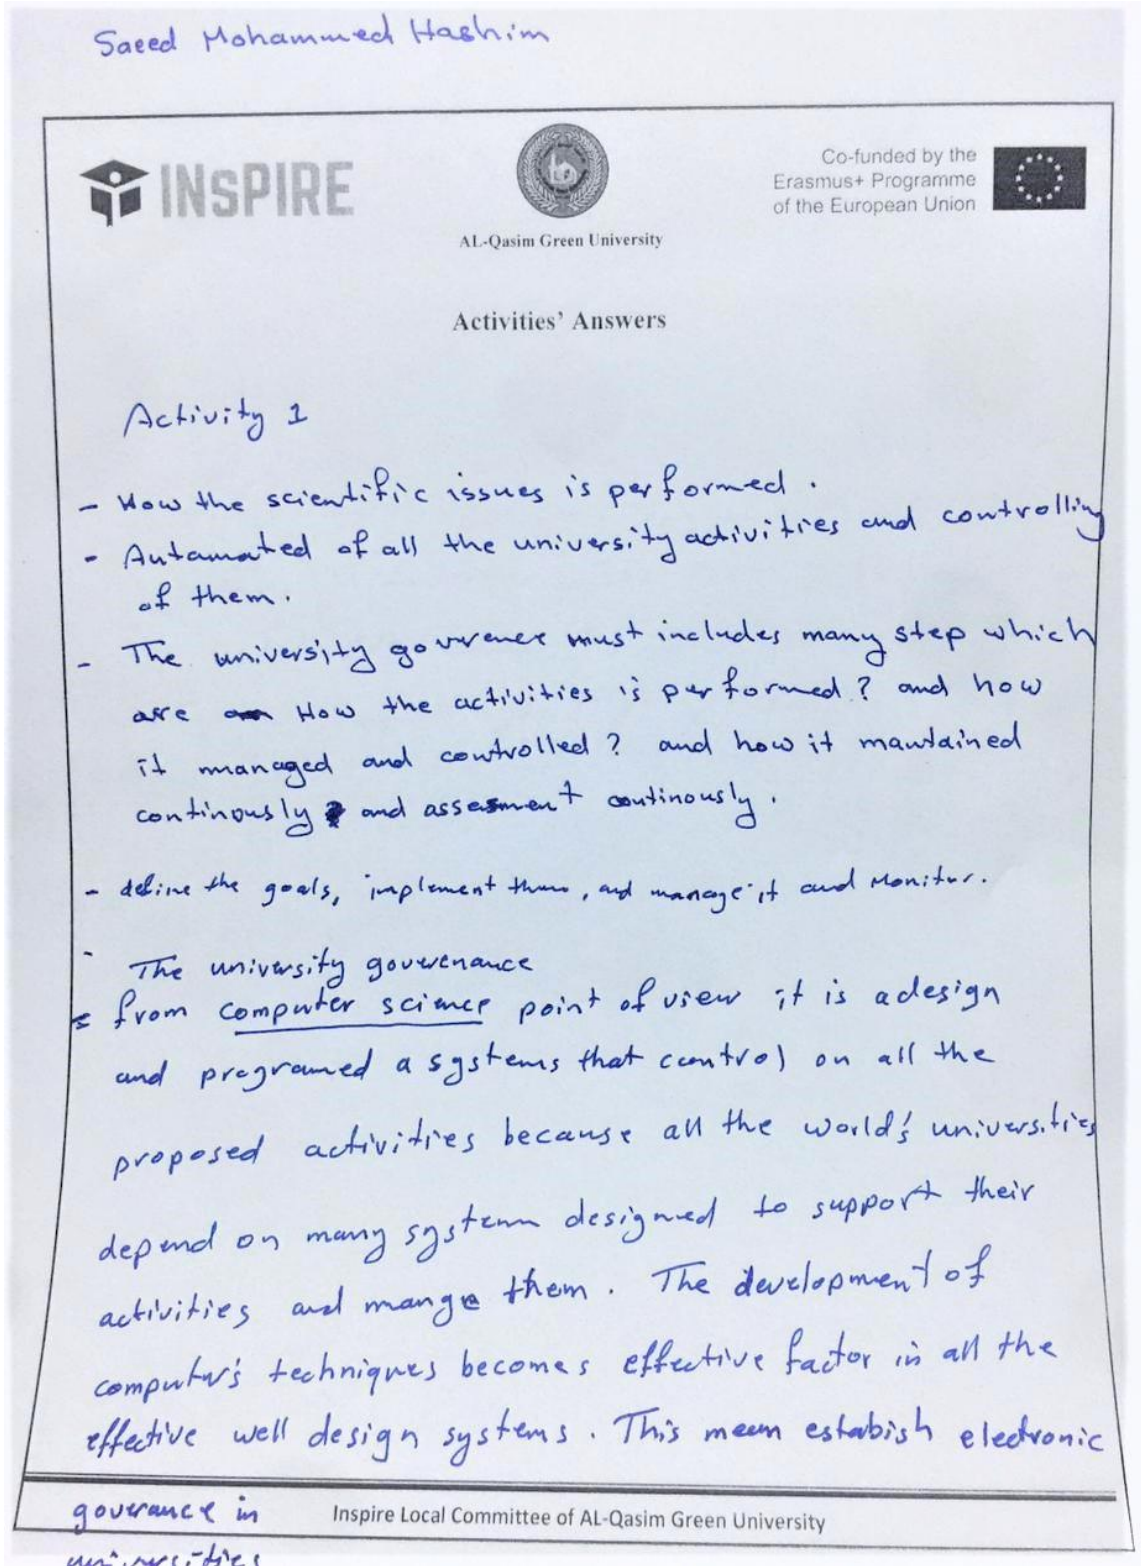 Saeed Mohammed Hashim
INSPIRE
AL-Qasim Green University
Co-funded by the
Erasmus+ Programme
of the European Union
Activities' Answers
Activity 1
- How the scientific issues is performed.
- Automated of all the university activities and controlling
of them.
- The university gouvrence must includes many step which
are How the activities is performed? and how
it managed and controlled? and how it maintained
continously and assessment continously.
- define the goals, implement them, and manage it and Monitor.
- The university gouvrenance
from computer science point of view it is a design
and programed a systems that control on all the
proposed activities because all the world's universities
depend on many system designed to support their
activities and mange them. The development of
computer's techniques becomes effective factor in all the
effective well design systems. This mean estabish electronic
gouvrance in
universities
Inspire Local Committee of AL-Qasim Green University